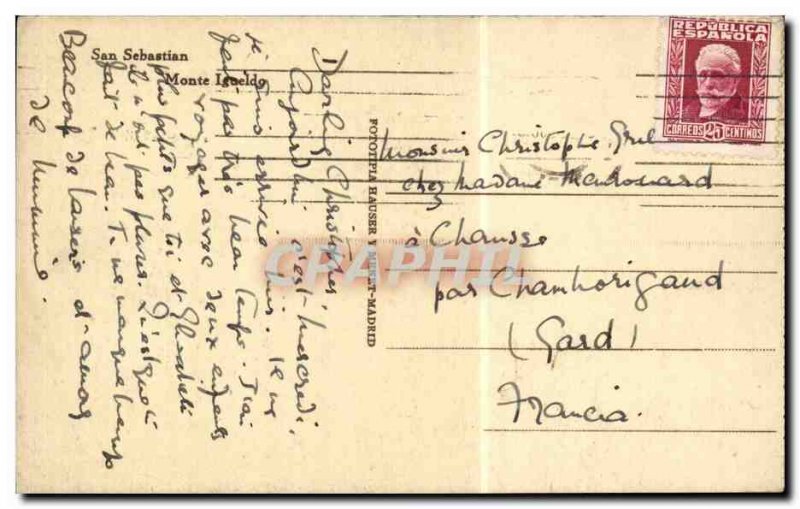 San Sebastian
Monte Igueldo
REPÚBLICA
ESPAÑOLA
CORREOS 25 CENTIMOS
FOTOTIPIA HAUSER Y MENET-MADRID
CPAPHIL
Monsieur Christophe
chez Madame
à Chausse
par Chamborigaud
(Gard)
Francia.
Darling Christophe,
Aujourd'hui c'est mercredi,
je suis arrivée hier. Il ne
fait pas très beau temps. J'ai
voyagé avec deux enfants
plus petits que toi et Elisabeth
ils n'ont pas pleuré.
fait de beau. Tu me manques beaucoup
Beaucoup de baisers d'amour
de